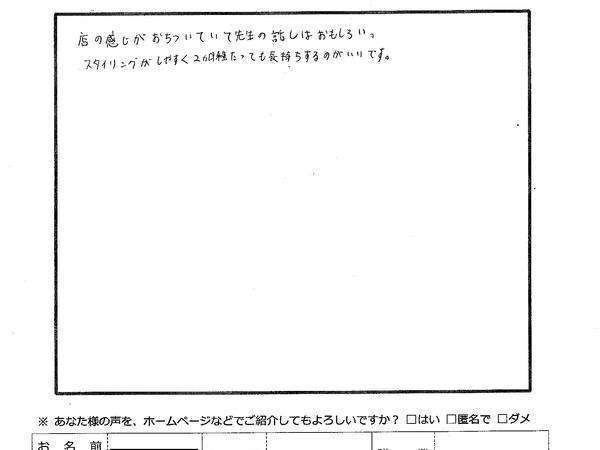 店の感じがおちついていて先生の話しはおもしろい。
スタイリングがしやすく2か月経たっても長持ちするのがいいです。
※ あなた様の声を、ホームページなどでご紹介してもよろしいですか？ □はい □匿名で □ダメ
お 名 前